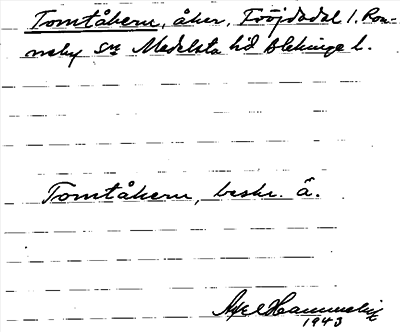 Tomtåkern, åker, Fröjdadal 1, Ron-
neby sn Medelsta hd Blekinge l.
Tomtåkern, beskr. å.
Axel Hammelin
1943